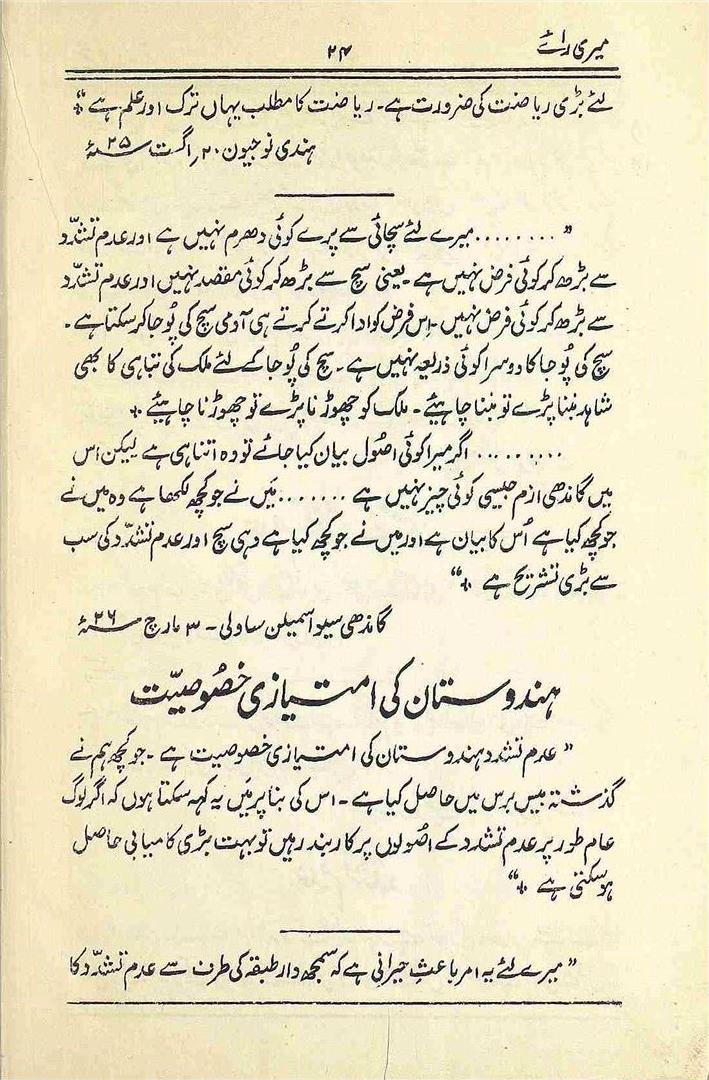 میری رائے
۲۴
لئے بڑی ریاضت کی ضرورت ہے۔ ریاضت کا مطلب یہاں ترک اور علم ہے ؞"
ہندی نوجیون ۲۰؍ اگست ۲۵ء
" ........ میرے لئے سچائی سے پرے کوئی دھرم نہیں ہے اور عدم تشدّد
سے بڑھ کر کوئی فرض نہیں ہے۔ یعنی سچ سے بڑھ کر کوئی مقصد نہیں اور عدم تشدّد
سے بڑھ کر کوئی فرض نہیں۔ اِس فرض کو ادا کرتے کرتے ہی آدمی سچ کی پُوجا کر سکتا ہے۔
سچ کی پُوجا کا دوسرا کوئی ذریعہ نہیں ہے۔ سچ کی پُوجا کے لئے ملک کی تباہی کا بھی
شاہد بننا پڑے تو بننا چاہیئے۔ ملک کو چھوڑنا پڑے تو چھوڑنا چاہیئے ؞
......... اگر میرا کوئی اصُول بیان کیا جائے تو وہ اتنا ہی ہے لیکن اس
میں گاندھی ازم جیسی کوئی چیز نہیں ہے ....... مَیں نے جو کچھ لکھا ہے وہ میں نے
جو کچھ کیا ہے اُس کا بیان ہے اور میں نے جو کچھ کیا ہے وہی سچ اور عدم تشدّد کی سب
سے بڑی تشریح ہے ؞"
گاندھی سیوا سمیلن ساولی۔ ۳؍ مارچ ۳۶ء
ہندوستان کی امتیازی خصُوصیّت
" عدم تشدد ہندوستان کی امتیازی خصوصیت ہے۔ جو کچھ ہم نے
گذشتہ بیس برس میں حاصل کیا ہے۔ اس کی بنا پر مَیں یہ کہہ سکتا ہوں کہ اگر لوگ
عام طور پر عدم تشدد کے اصُولوں پر کاربند رہیں تو بہت بڑی کامیابی حاصل
ہو سکتی ہے ؞"
" میرے لئے یہ امر باعثِ حیرانی ہے کہ سمجھ دار طبقہ کی طرف سے عدم تشدّد کا